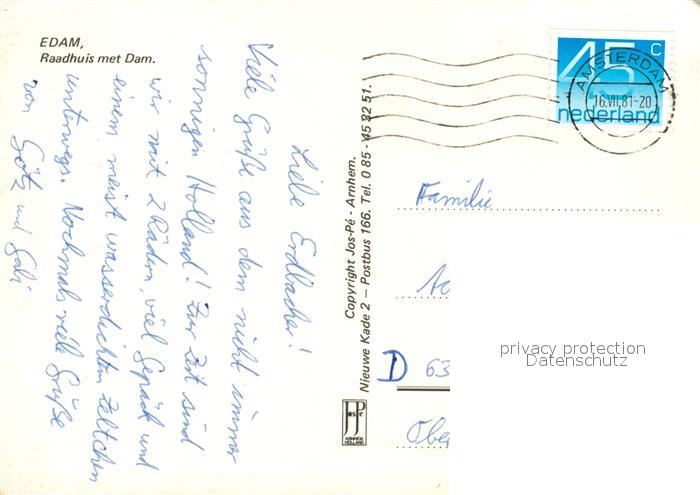 EDAM,
Raadhuis met Dam.
Liebe Erdbacher!
Viele Grüße aus dem nicht immer
sonnigen Holland! Zur Zeit sind
wir mit 2 Rädern, viel Gepäck und
einem meist wasserdichten Zeltchen
unterwegs. Nochmals viele Grüße
von Götz und Gabi
Copyright Jos-Pé - Arnhem.
Nieuwe Kade 2 – Postbus 166. Tel. 0 85 - 45 32 51.
JosPé
ARNHEM
HOLLAND
45 c
nederland
AMSTERDAM
16.VII.81-20
Familie
D 63
Obe
privacy protection
Datenschutz